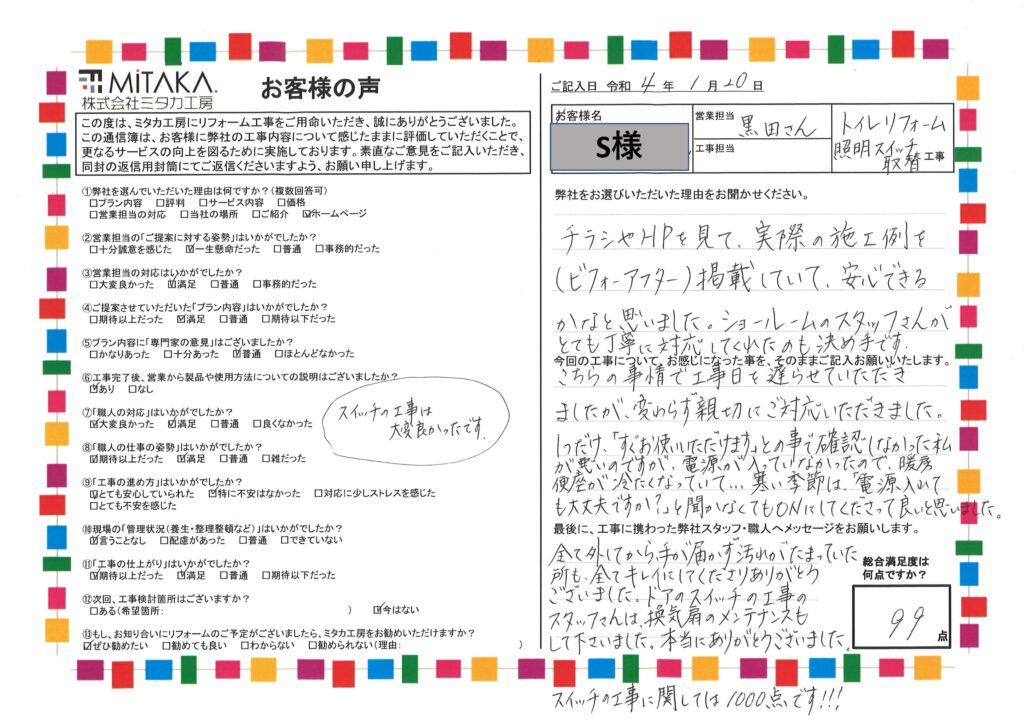 MiTAKA.
株式会社ミタカ工房
お客様の声
この度は、ミタカ工房にリフォーム工事をご用命いただき、誠にありがとうございました。
この通信簿は、お客様に弊社の工事内容について感じたままに評価していただくことで、
更なるサービスの向上を図るために実施しております。素直なご意見をご記入いただき、
同封の返信用封筒にてご返信くださいますよう、お願い申し上げます。
①弊社を選んでいただいた理由は何ですか？(複数回答可)
□プラン内容 □評判 □サービス内容 □価格
□営業担当の対応 □当社の場所 □ご紹介 ☑ホームページ
②営業担当の「ご提案に対する姿勢」はいかがでしたか？
□十分誠意を感じた ☑一生懸命だった □普通 □事務的だった
③営業担当の対応はいかがでしたか？
□大変良かった ☑満足 □普通 □事務的だった
④ご提案させていただいた「プラン内容」はいかがでしたか？
□期待以上だった ☑満足 □普通 □期待以下だった
⑤プラン内容に「専門家の意見」はございましたか？
□かなりあった □十分あった ☑普通 □ほとんどなかった
⑥工事完了後、営業から製品や使用方法についての説明はございましたか？
☑あり □なし
⑦「職人の対応」はいかがでしたか？
☑大変良かった ☑満足 □普通 □良くなかった
スイッチの工事は
大変良かったです。
⑧「職人の仕事の姿勢」はいかがでしたか？
☑期待以上だった ☑満足 □普通 □雑だった
⑨「工事の進め方」はいかがでしたか？
☑とても安心していられた ☑特に不安はなかった □対応に少しストレスを感じた
□とても不安を感じた
⑩現場の「管理状況(養生・整理整頓など)」はいかがでしたか？
☑言うことなし □配慮があった □普通 □できていない
⑪「工事の仕上がり」はいかがでしたか？
☑期待以上だった ☑満足 □普通 □期待以下だった
⑫次回、工事検討箇所はございますか？
□ある(希望箇所: ) ☑今はない
⑬もし、お知り合いにリフォームのご予定がございましたら、ミタカ工房をお勧めいただけますか？
☑ぜひ勧めたい □勧めても良い □わからない □勧められない(理由: )
ご記入日 令和 4 年 1 月 20 日
お客様名
S様
営業担当 黒田さん
工事担当
トイレリフォーム
照明スイッチ
取替 工事
弊社をお選びいただいた理由をお聞かせください。
チラシやHPを見て、実際の施工例を
(ビフォーアフター)掲載していて、安心できる
かなと思いました。ショールームのスタッフさんが
とても丁寧に対応してくれたのも決め手です。
今回の工事について、お感じになった事を、そのままご記入お願いいたします。
こちらの事情で工事日を遅らせていただき
ましたが、変わらず親切にご対応いただきました。
1つだけ、「すぐお使いいただけます」との事で確認しなかった私
が悪いのですが、電源が入っていなかったので、暖房
便座が冷たくなっていて… 寒い季節は、「電源入れて
も大丈夫ですか?」と聞かなくてもONにしてくださって良いと思いました。
最後に、工事に携わった弊社スタッフ・職人へメッセージをお願いします。
全て外してから、手が届かず汚れがたまっていた
所も、全てキレイにしてくださりありがとう
ございました。ドアのスイッチの工事の
スタッフさんは、換気扇のメンテナンスも
して下さいました。本当にありがとうございました。
総合満足度は
何点ですか？
99 点
スイッチの工事に関しては1000点です!!!